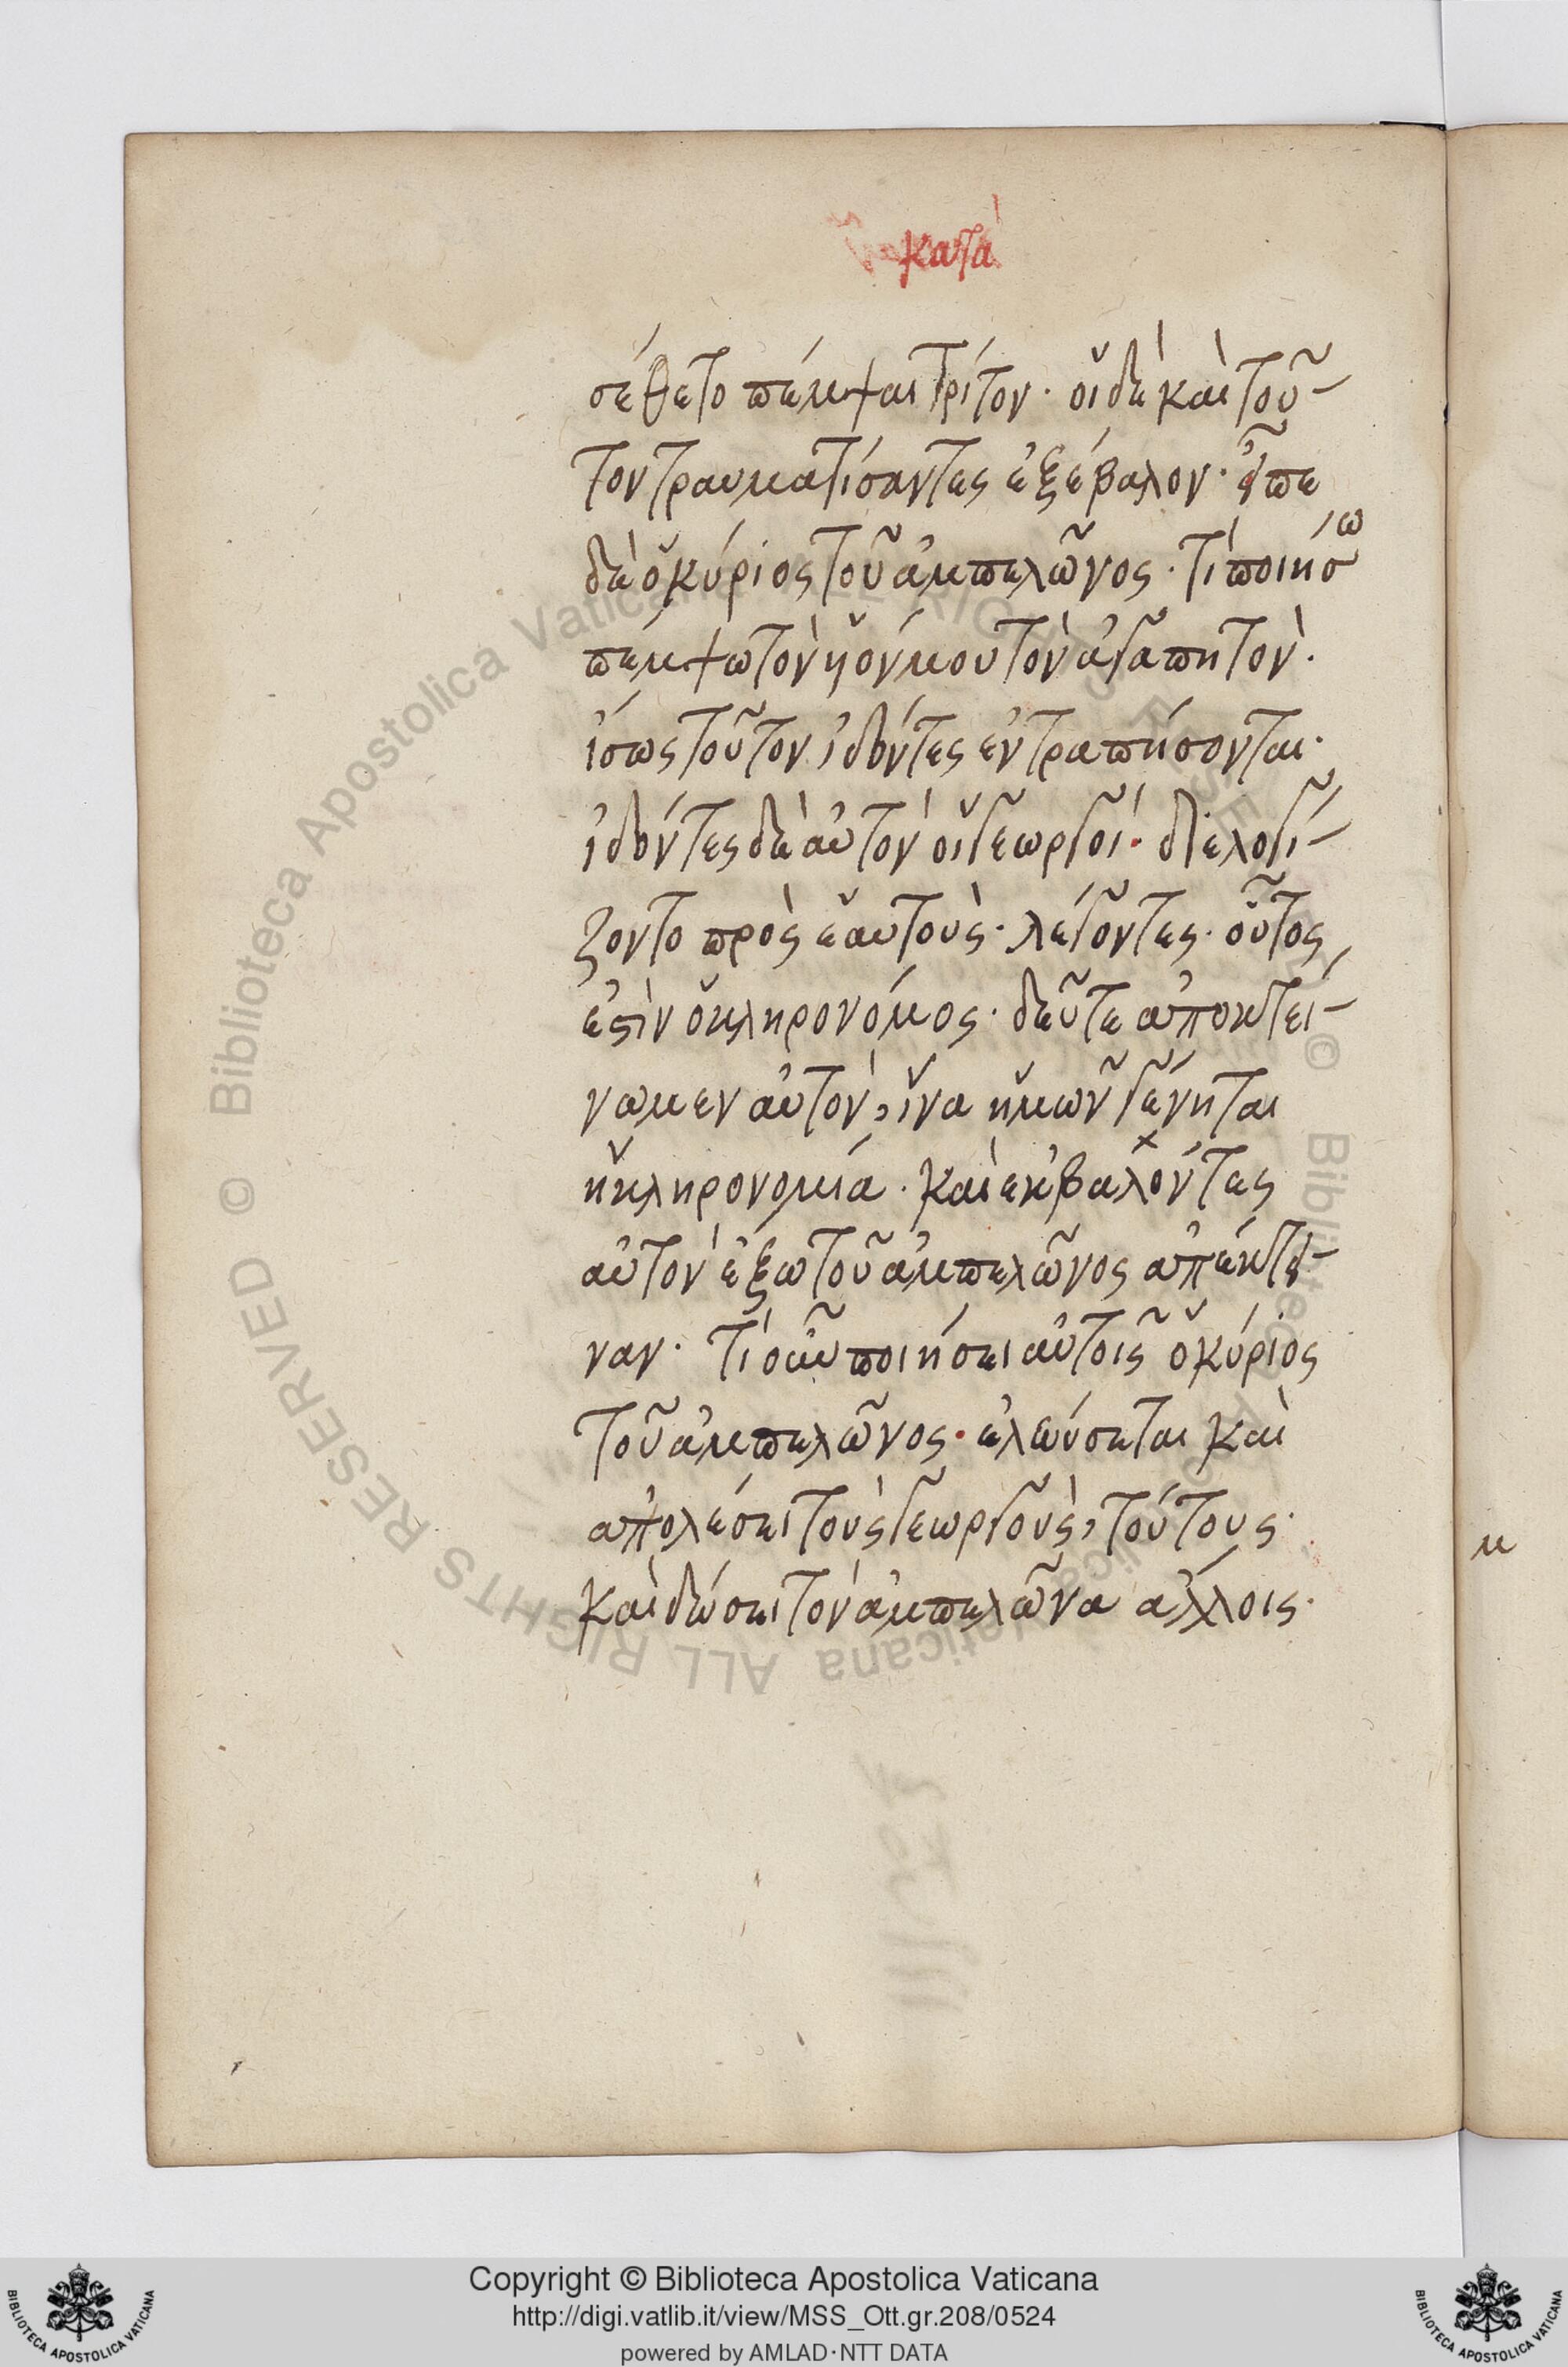 κατὰ
σέθετο πέμψαι τρίτον· οἱ δὲ καὶ τοῦ-
τον τραυματίσαντες ἐξέβαλον· εἶπε
δὲ ὁ κύριος τοῦ ἀμπελῶνος· τί ποιήσω
πέμψω τὸν ὑόν μου τὸν ἀγαπητὸν·
ἴσως τοῦτον ἰδόντες ἐντραπήσονται·
ἰδόντες δὲ αὐτὸν οἱ γεωργοὶ· διελογί-
ζοντο πρὸς ἑαυτοὺς· λέγοντες· οὗτος
ἐστὶν ὁ κληρονόμος· δεῦτε ἀποκτεί-
νωμεν αὐτὸν, ἵνα ἡμῶν γένηται
ἡ κληρονομία· καὶ ἐκβαλόντες
αὐτὸν ἔξω τοῦ ἀμπελῶνος ἀπέκτει-
ναν· τί οὖν ποιήσει αὐτοῖς ὁ κύριος
τοῦ ἀμπελῶνος· ἐλεύσεται καὶ
ἀπολέσει τοὺς γεωργοὺς, τούτους·
καὶ δώσει τὸν ἀμπελῶνα ἄλλοις·
Biblioteca Apostolica Vaticana ALL RIGHTS RESERVED ©
© Biblioteca Apostolica Vaticana ALL RIGHTS RESERVED
Copyright © Biblioteca Apostolica Vaticana
http://digi.vatlib.it/view/MSS_Ott.gr.208/0524
powered by AMLAD·NTT DATA
BIBLIOTECA APOSTOLICA VATICANA
BIBLIOTECA APOSTOLICA VATICANA